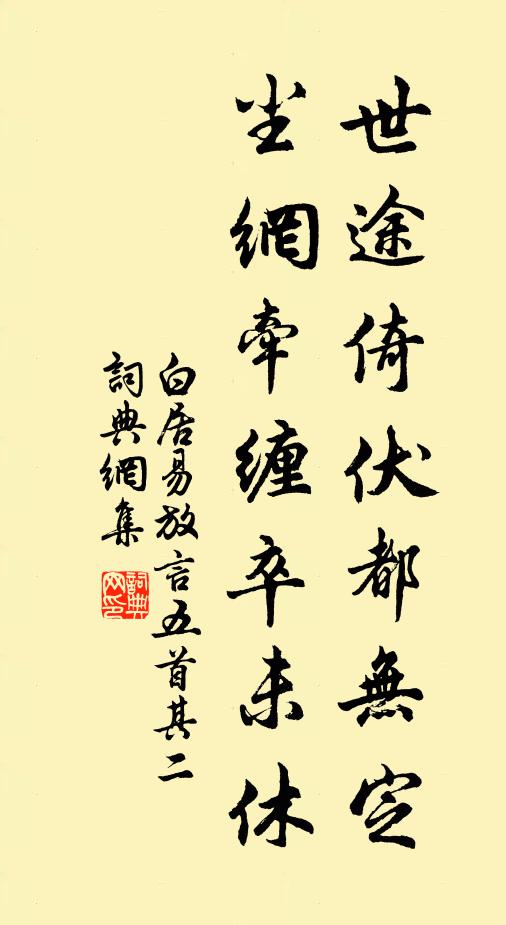 世途倚伏都無定
尘網牽纏卒未休
白居易放言五首其二
詞典網集
詞典网印